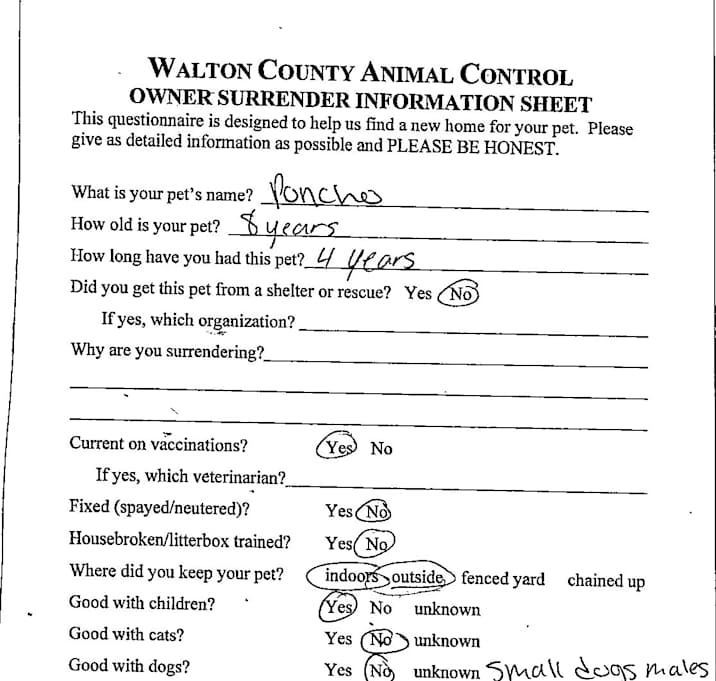 WALTON COUNTY ANIMAL CONTROL
OWNER SURRENDER INFORMATION SHEET
This questionnaire is designed to help us find a new home for your pet. Please
give as detailed information as possible and PLEASE BE HONEST.
What is your pet's name? Ponches
How old is your pet? 8 years
How long have you had this pet? 4 years
Did you get this pet from a shelter or rescue? Yes No
If yes, which organization?
Why are you surrendering?
Current on vaccinations? Yes No
If yes, which veterinarian?
Fixed (spayed/neutered)? Yes No
Housebroken/litterbox trained? Yes No
Where did you keep your pet? indoors outside fenced yard chained up
Good with children? Yes No unknown
Good with cats? Yes No unknown
Good with dogs? Yes No unknown Small dogs males